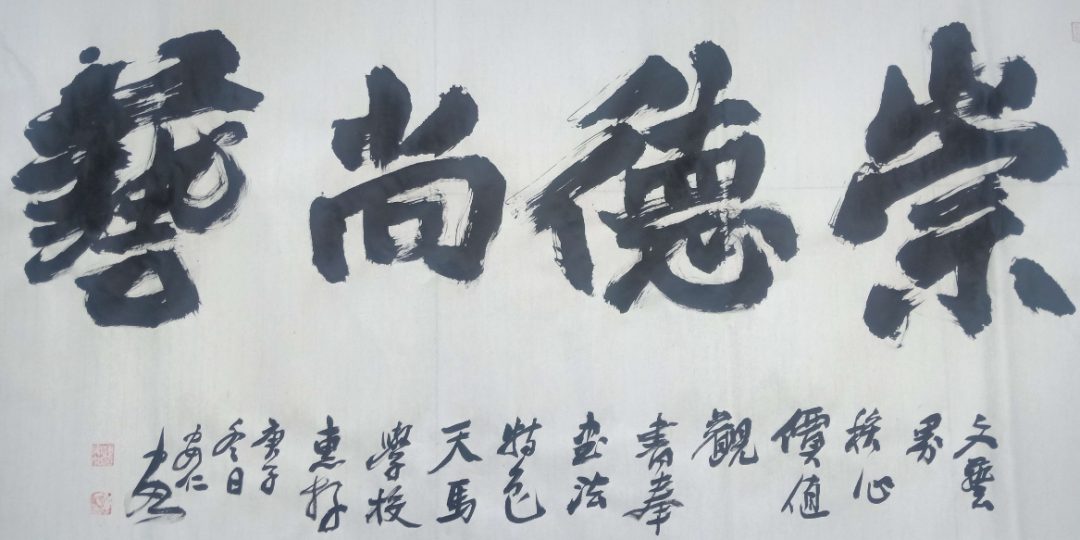 崇德尚藝
文藝
界
核心
價值
觀
書奉
書法
特色
天馬
學校
惠存
庚子
冬日
安仁